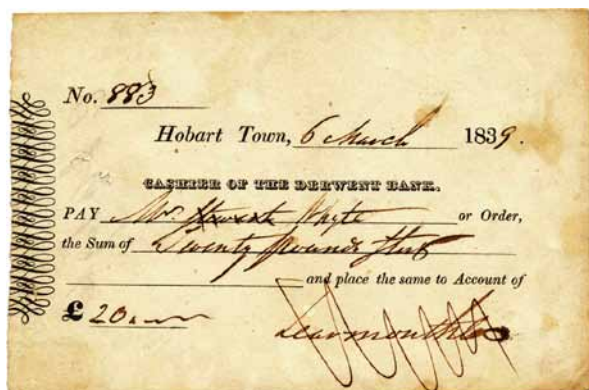 No. 883
Hobart Town, 6 March 1839.
CASHIER OF THE DERWENT BANK.
PAY Mr. Whyte or Order,
the Sum of Twenty Pounds Ster
and place the same to Account of
£ 20